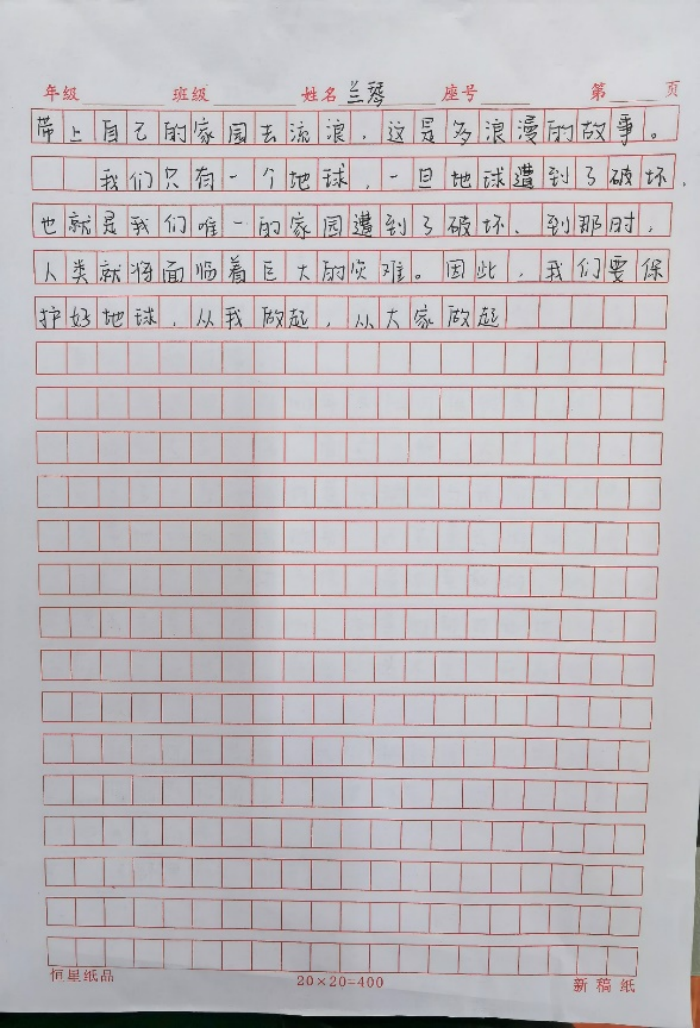 年级 班级 姓名 兰琴 座号 第 页
带上自己的家园去流浪，这是多浪漫的故事。
我们只有一个地球，一旦地球遭到了破坏，
也就是我们唯一的家园遭到了破坏、到那时，
人类就将面临着巨大的灾难。因此，我们要保
护好地球，从我做起，从大家做起
恒星纸品 20×20=400 新稿纸